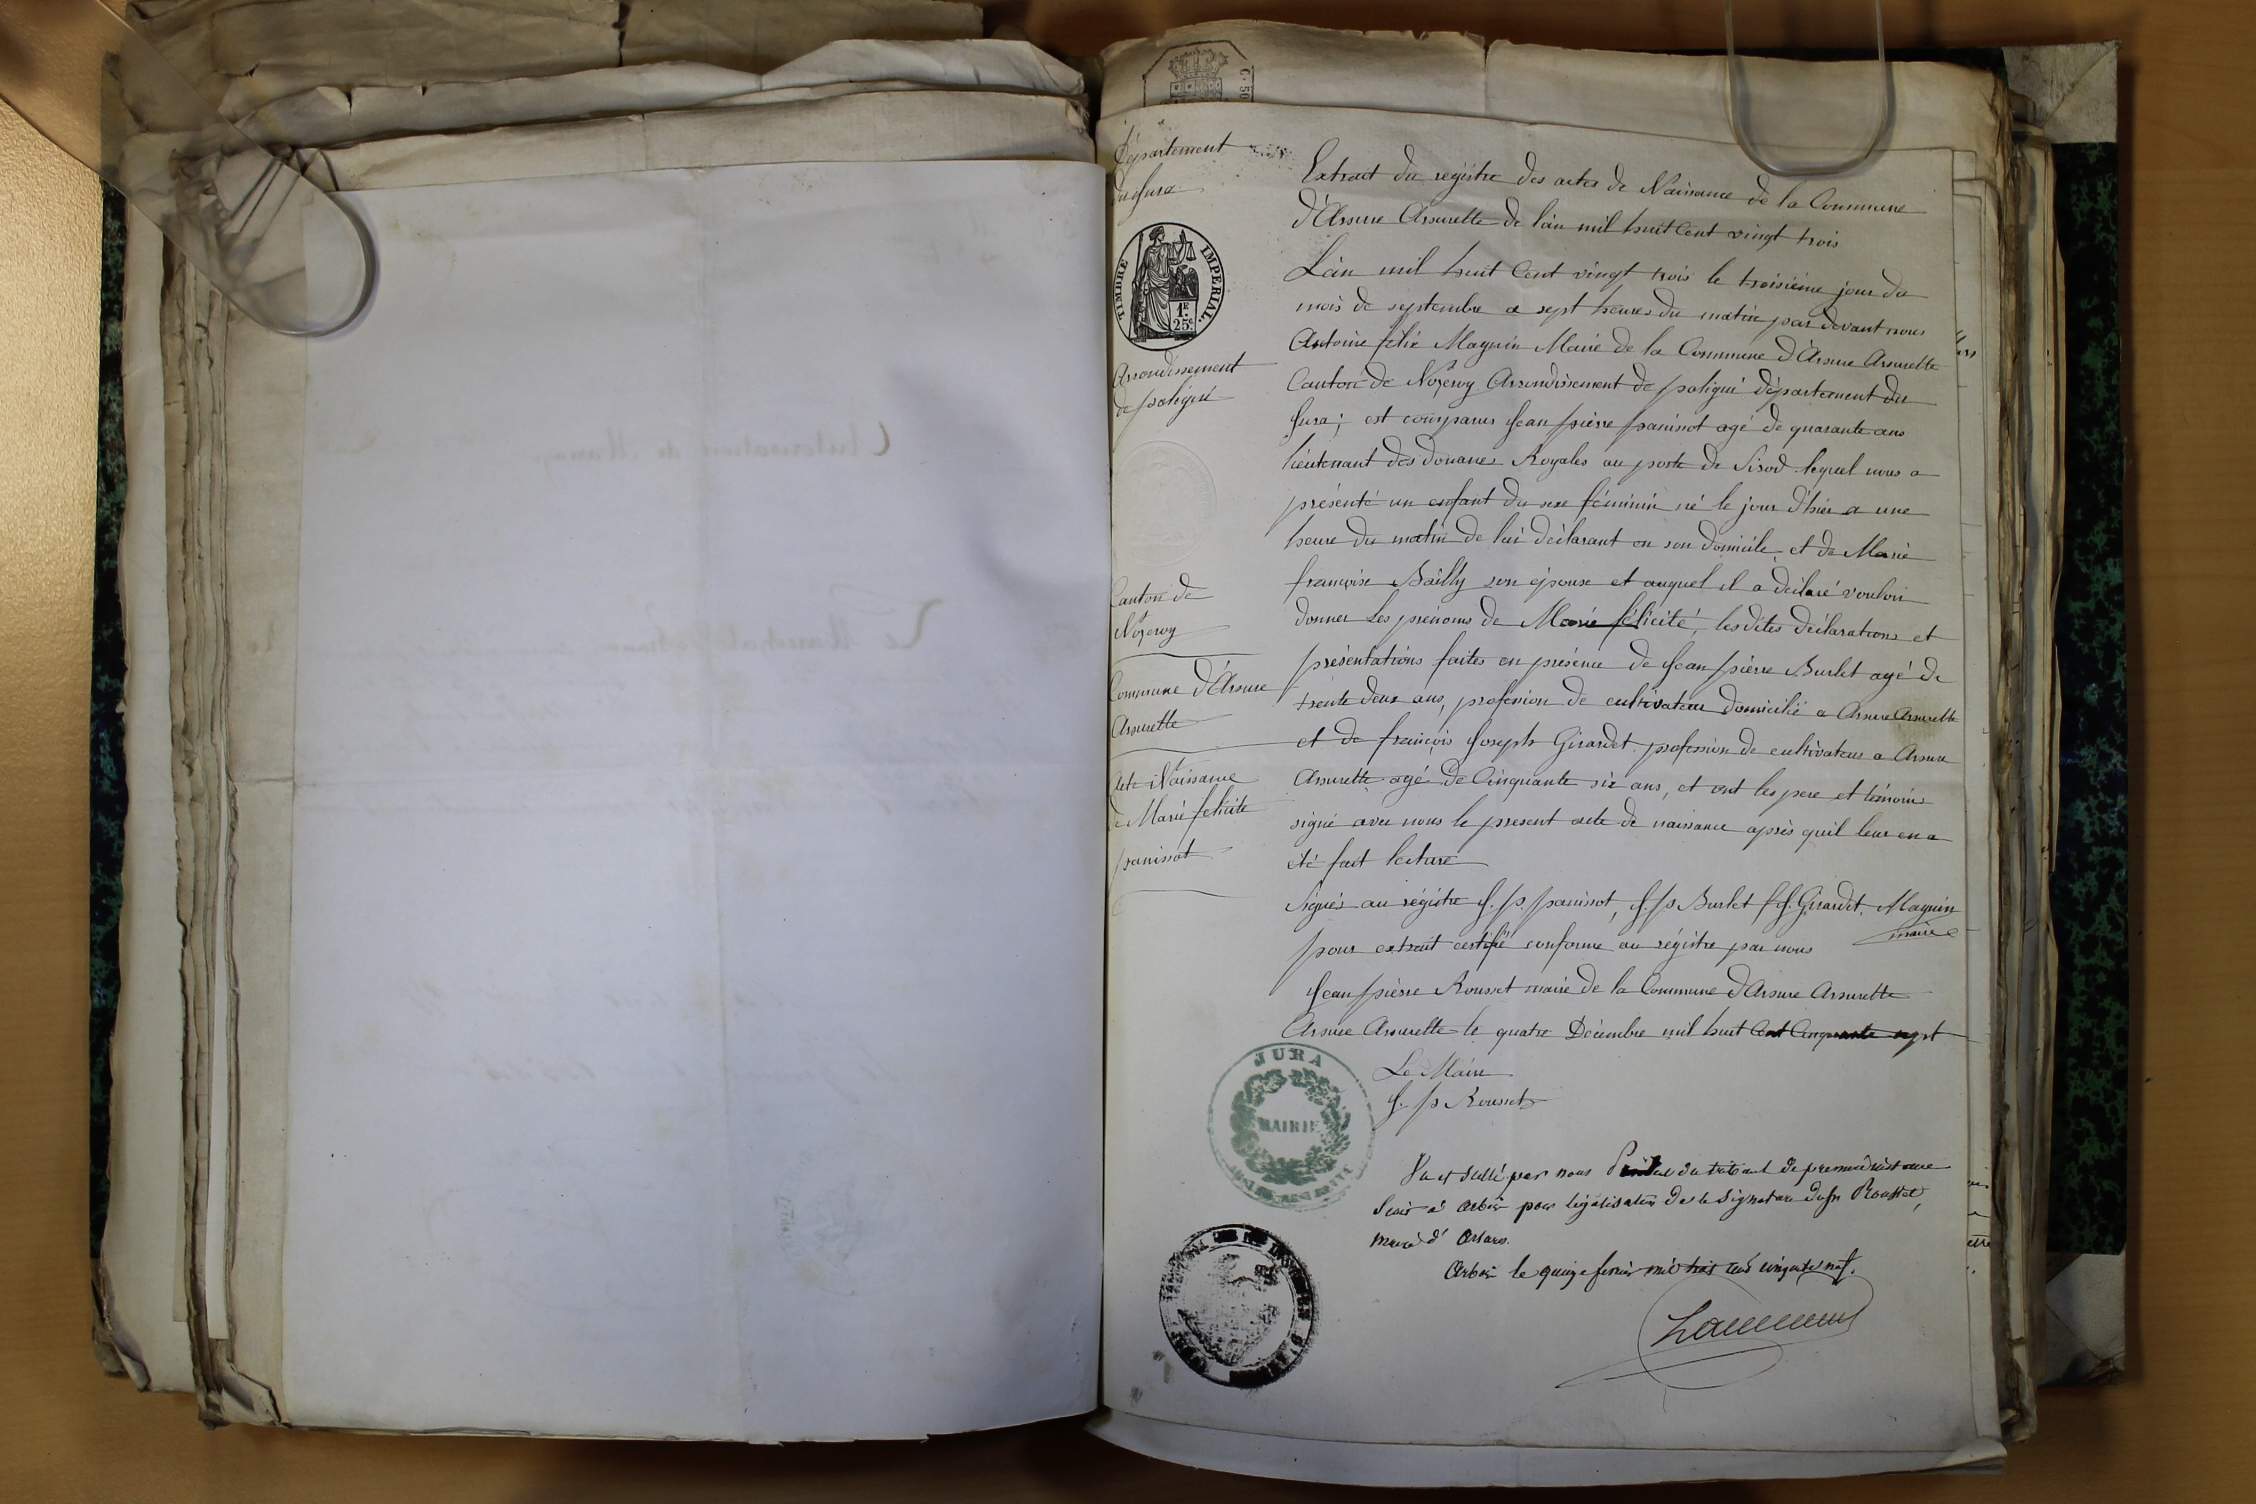 Département
du Jura
TIMBRE IMPERIAL.
1F
25c
Arrondissement
de poligni
Canton de
Nozeroy
Commune d'Arsure
Arsurette
acte Naissance
de Marie félicité
panissot
Extrait du régistre des actes de Naissance de la Commune
d'Arsure Arsurette de l'an mil huit Cent vingt trois
L'an mil huit Cent vingt trois le troisième jour du
mois de septembre a sept heures du matin par devant nous
Antoine félix Magnin Maire de la Commune d'Arsure Arsurette
Canton de Nozeroy Arrondissement de poligni département du
Jura; est comparus Jean pierre panissot agé de quarante ans
lieutenant des douanes Royales au poste de Sirod lequel nous a
présenté un enfant du sexe féminin né le jour d'hier a une
heure du matin de lui déclarant en son domicile et de Marie
françoise Bailly son épouse et auquel il a déclaré vouloir
donner les prénoms de Marie félicité, les dites déclarations et
présentations faites en présence de Jean pierre Burlet agé de
trente deux ans, profession de cultivateur domicilié a Arsure Arsurette
et de françois Joseph Girardet profession de cultivateur a Arsure
Arsurette agé de Cinquante six ans, et ont les pere et témoins
signé avec nous le present acte de naissance après qu'il leur en a
été fait lecture
Signés au régistre J. p. panissot, J. p Burlet f J. Girardet. Magnin
maire
pour extrait certifié conforme au régistre par nous
Jean pierre Rousset maire de la Commune d'Arsure Arsurette
Arsure Arsurette le quatre Décembre mil huit Cent Cinquante sept
Le Maire
J. p Rousset
JURA
MAIRIE
Vu et Scellé par nous du tribunal de première instance
Séant à Arbois pour légalisation de la Signature du Sr Rousset,
maire d'
Arbois le quinze